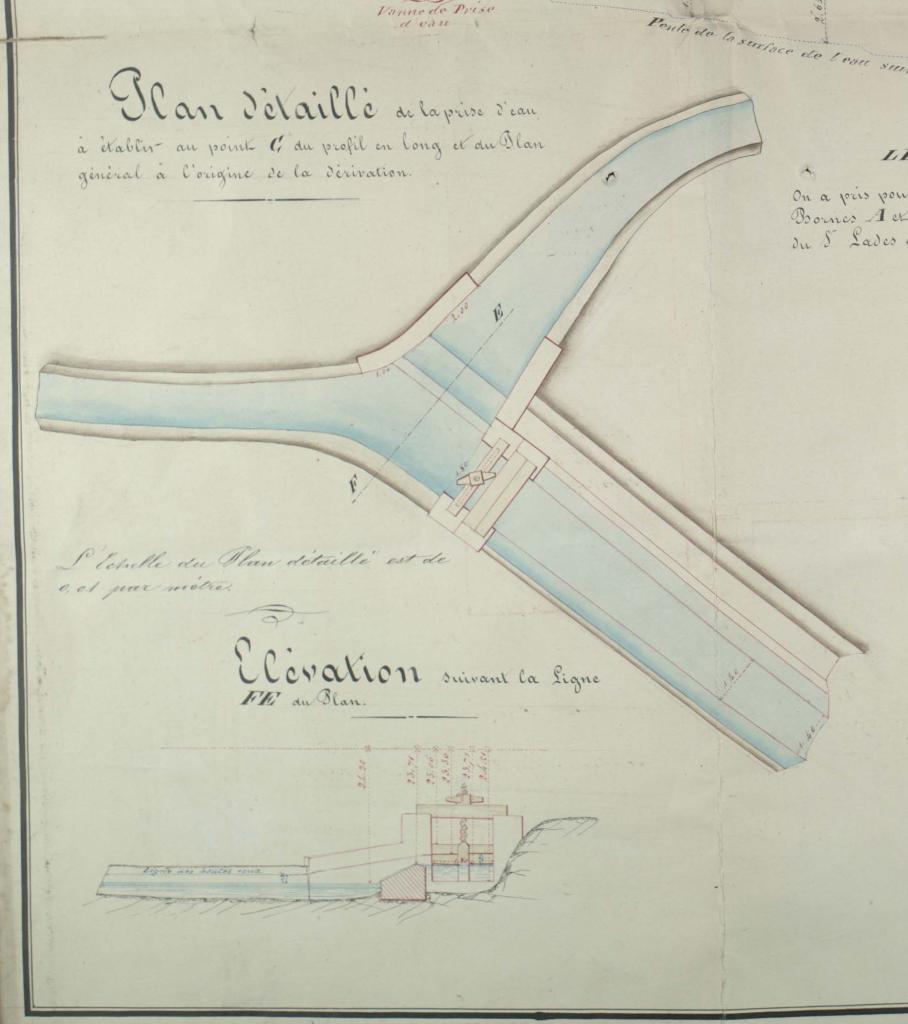 Vanne de Prise
d'eau
Pente de la surface de l'eau suiv
Plan détaillé de la prise d'eau
à établir au point C, du profil en long et du Plan
général à l'origine de la dérivation.
LE
On a pris pour
Bornes A et
du Sr Lades
2,00
E
1,50
F
L'Echelle du Plan détaillé est de
0,01 par mètre.
Elévation suivant la Ligne
FE du Plan.
1,40
1,40
Ligne des hautes eaux